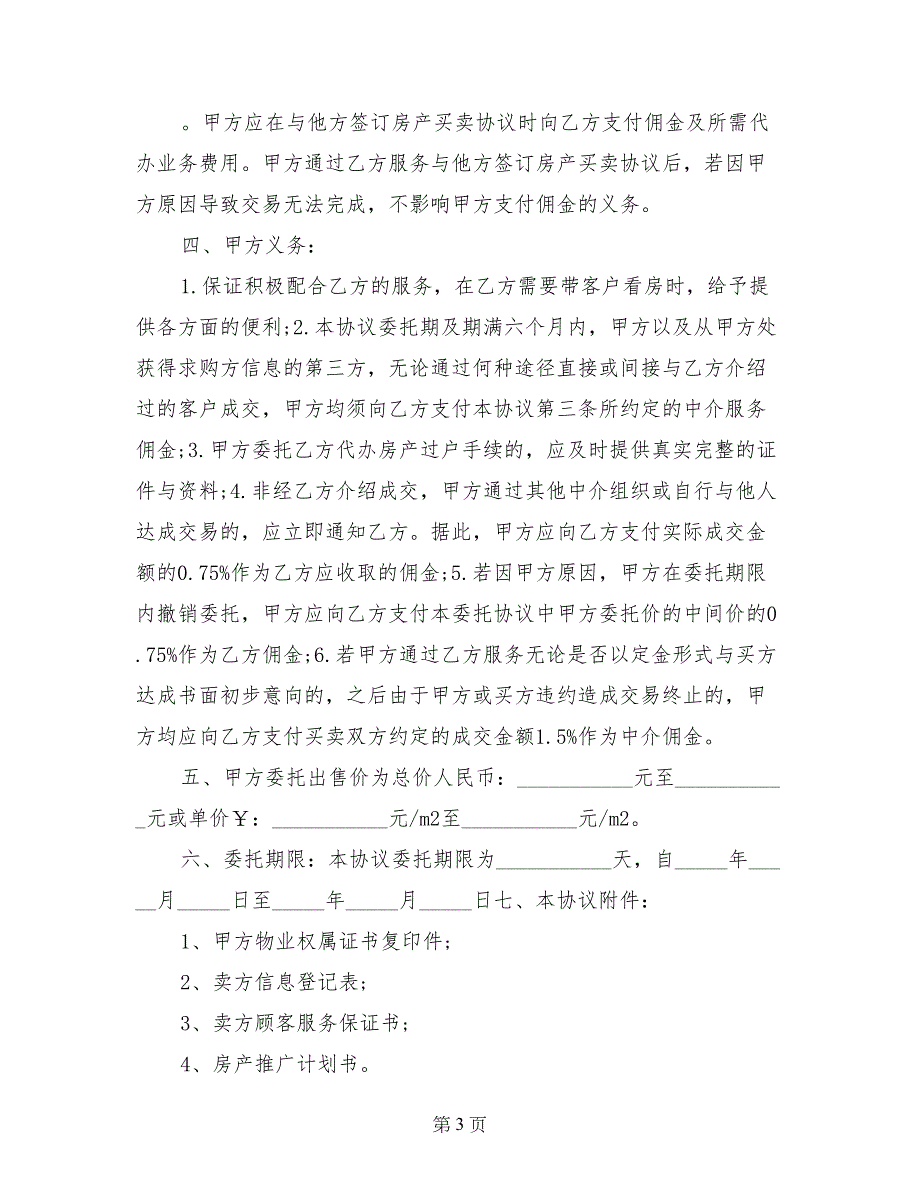 。甲方应在与他方签订房产买卖协议时向乙方支付佣金及所需代
办业务费用。甲方通过乙方服务与他方签订房产买卖协议后，若因甲
方原因导致交易无法完成，不影响甲方支付佣金的义务。
四、甲方义务：
1.保证积极配合乙方的服务，在乙方需要带客户看房时，给予提
供各方面的便利;2.本协议委托期及期满六个月内，甲方以及从甲方处
获得求购方信息的第三方，无论通过何种途径直接或间接与乙方介绍
过的客户成交，甲方均须向乙方支付本协议第三条所约定的中介服务
佣金;3.甲方委托乙方代办房产过户手续的，应及时提供真实完整的证
件与资料;4.非经乙方介绍成交，甲方通过其他中介组织或自行与他人
达成交易的，应立即通知乙方。据此，甲方应向乙方支付实际成交金
额的0.75%作为乙方应收取的佣金;5.若因甲方原因，甲方在委托期限
内撤销委托，甲方应向乙方支付本委托协议中甲方委托价的中间价的0
.75%作为乙方佣金;6.若甲方通过乙方服务无论是否以定金形式与买方
达成书面初步意向的，之后由于甲方或买方违约造成交易终止的，甲
方均应向乙方支付买卖双方约定的成交金额1.5%作为中介佣金。
五、甲方委托出售价为总价人民币：___________元至__________
_元或单价￥：___________元/m2至___________元/m2。
六、委托期限：本协议委托期限为___________天，自_____年___
__月_____日至_____年_____月_____日七、本协议附件：
1、甲方物业权属证书复印件;
2、卖方信息登记表;
3、卖方顾客服务保证书;
4、房产推广计划书。
第 3 页